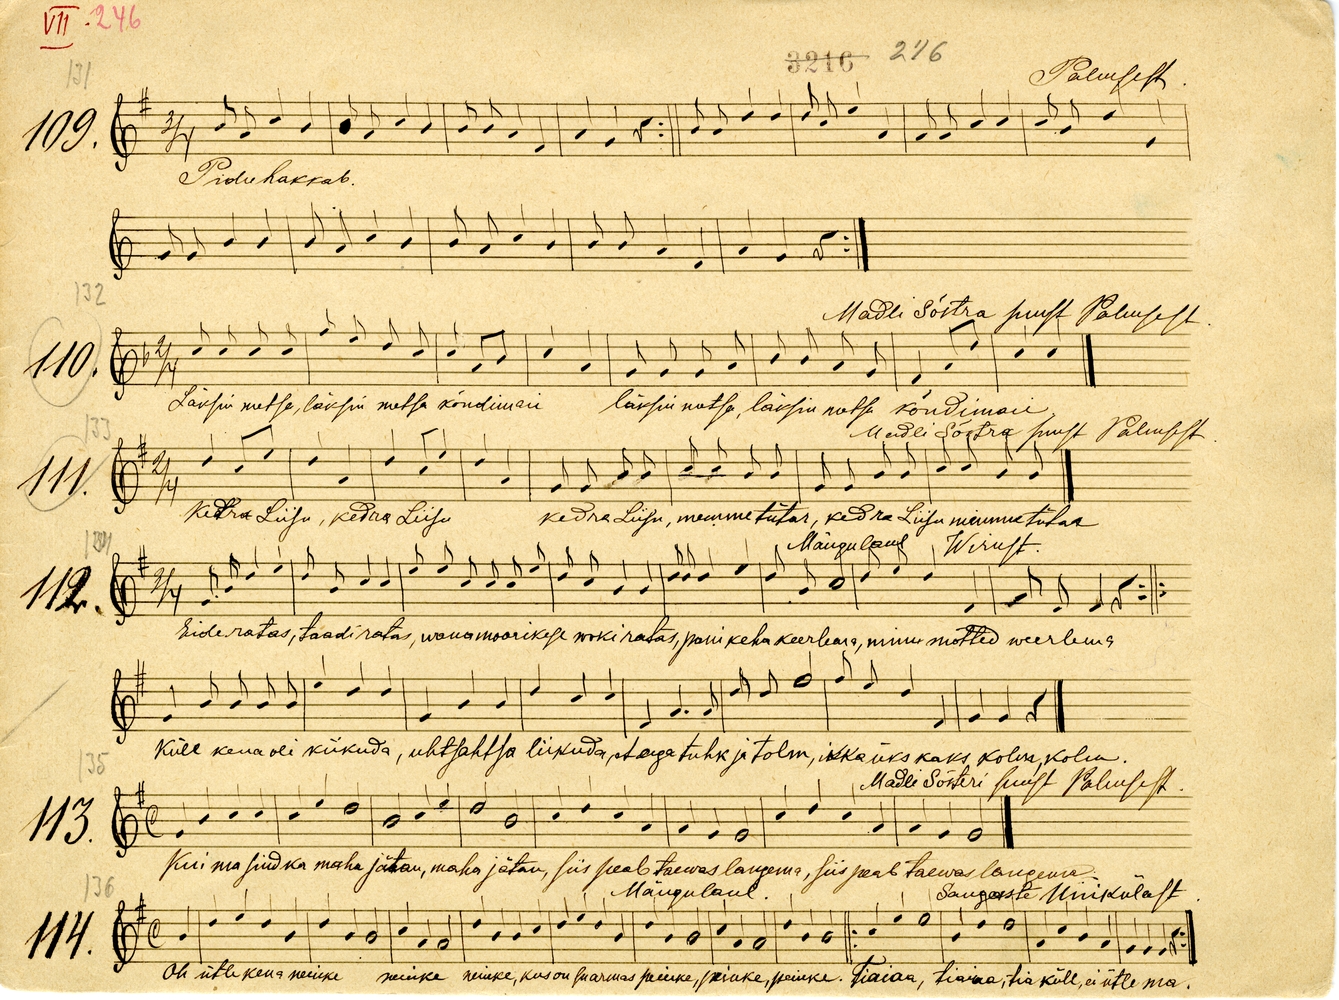 VII. 246
3216 246
131
Palmsest.
109.
3/4
Piduhakkab.
132
Madli Sõstra suust Palmsest.
110.
2/4
Läksin metsa, läksin metsa kõndimaie läksin metsa, läksin metsa kõndimaie
133
Madli Sõstra suust Palmsest.
111.
2/4
Kedra Liisu, kedra Liisu kedra Liisu, memmetütar, kedra Liisu memmetütar
134
Mängulaul Wirust.
112.
3/4
Eideratas, taadiratas, wanamoorikese wokiratas, pani keha keerlema, minu mõtted weerlema
Küll kena oli kiikuda, uhtsahtsa liikuda, tuhk ja tolm, ikka üks kaks kolm, kolm.
135
Madli Sõsteri suust Palmsest.
113.
C
Kui ma sind ka maha jätan, maha jätan, siis peab taewas langema, siis peab taewas langema.
136
Mängulaul. Sangaste Uniküläst.
114.
C
Oh ütle kena neiuke neiuke neiuke, kus on su armas peiuke, peiuke, peiuke. Tiaiaa, tiaiaa, tia küll, ei ütle ma.